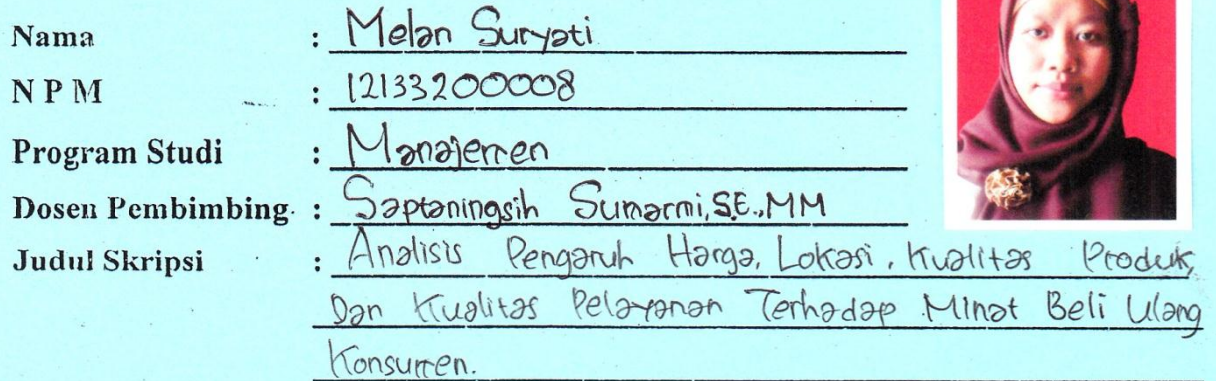 Nama : Melan Suryati
NPM : 12133200008
Program Studi : Manajemen
Dosen Pembimbing : Saptaningsih Sumarmi, SE., MM
Judul Skripsi : Analisis Pengaruh Harga, Lokasi, Kualitas Produk,
Dan Kualitas Pelayanan Terhadap Minat Beli Ulang
Konsumen.